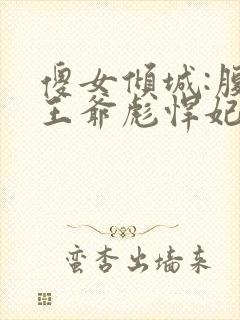 傻女倾城:腹
王爷彪悍妃
蛮杏出墙来